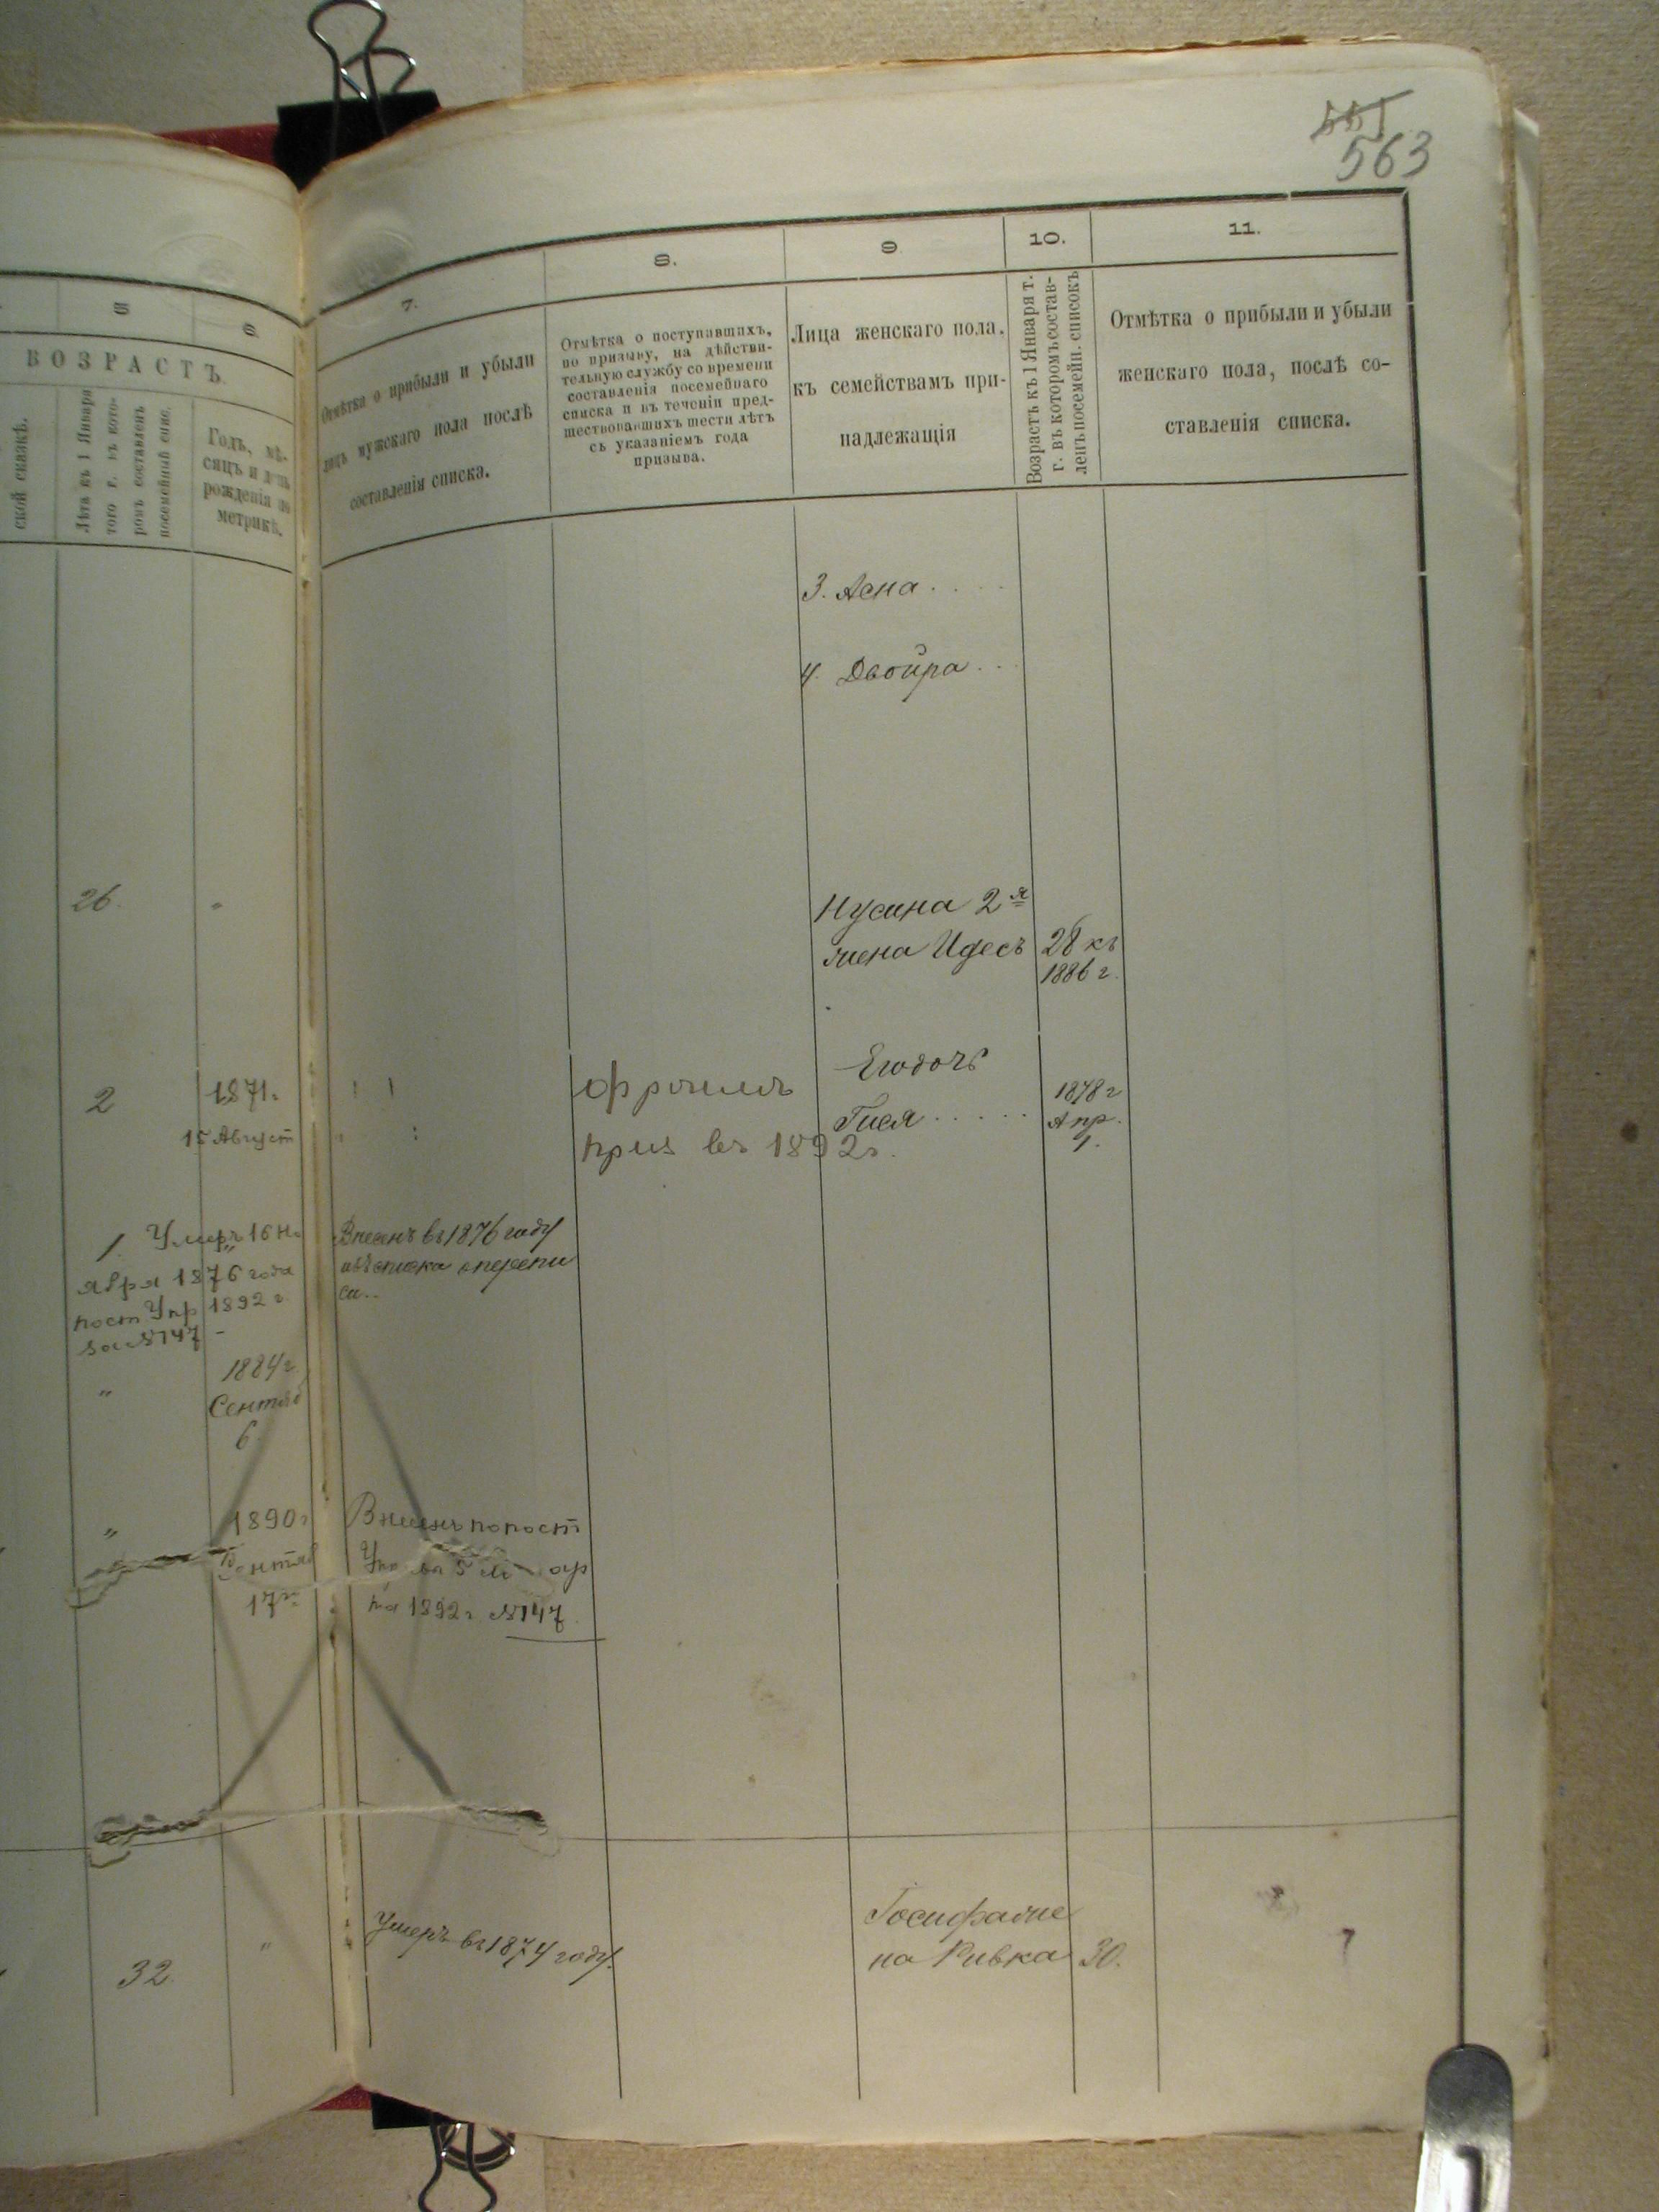 563
5.
6.
7.
8.
9
10.
11.
ВОЗРАСТЪ.
ской сказкѣ.
Лѣта къ 1 Января
того г. въ кото-
ромъ составленъ
посемейный спис.
Годъ, мѣ-
сяцъ и день
рожденія по
метрикѣ.
Отмѣтка о прибыли и убыли
лицъ мужскаго пола послѣ
составленія списка.
Отмѣтка о поступавшихъ,
по призыву, на дѣйстви-
тельную службу со времени
составленія посемейнаго
списка и въ теченіи пред-
шествовавшихъ шести лѣтъ
съ указаніемъ года
призыва.
Лица женскаго пола.
къ семействамъ при-
надлежащія
Возрастъ къ 1 Января т.
г. въ которомъ состав-
ленъ посемейн. списокъ
Отмѣтка о прибыли и убыли
женскаго пола, послѣ со-
ставленія списка.
3. Асна . . . .
4. Двойра . . .
26.
Нусина 2я
жена Идесъ
28 къ
1886 г.
2
1871.
15 Август
Фроимъ
приз въ 1892г.
Егодочь
Гися . . . . .
1878 г
Апр.
1.
1. Умеръ 16 Но
ября 1876 года
пост Упр 1892 г
за №147 -
Внесенъ въ 1876 году
изъ списка о перепи
си..
"
1884 г.
Сентяб
6
"
1890 г
Сентяб
17го
Внесенъ по пост
Упр 5 ар
та 1892 г. №147.
32
"
Умеръ въ 1874 году.
Іосифа же
на Ривка
30.